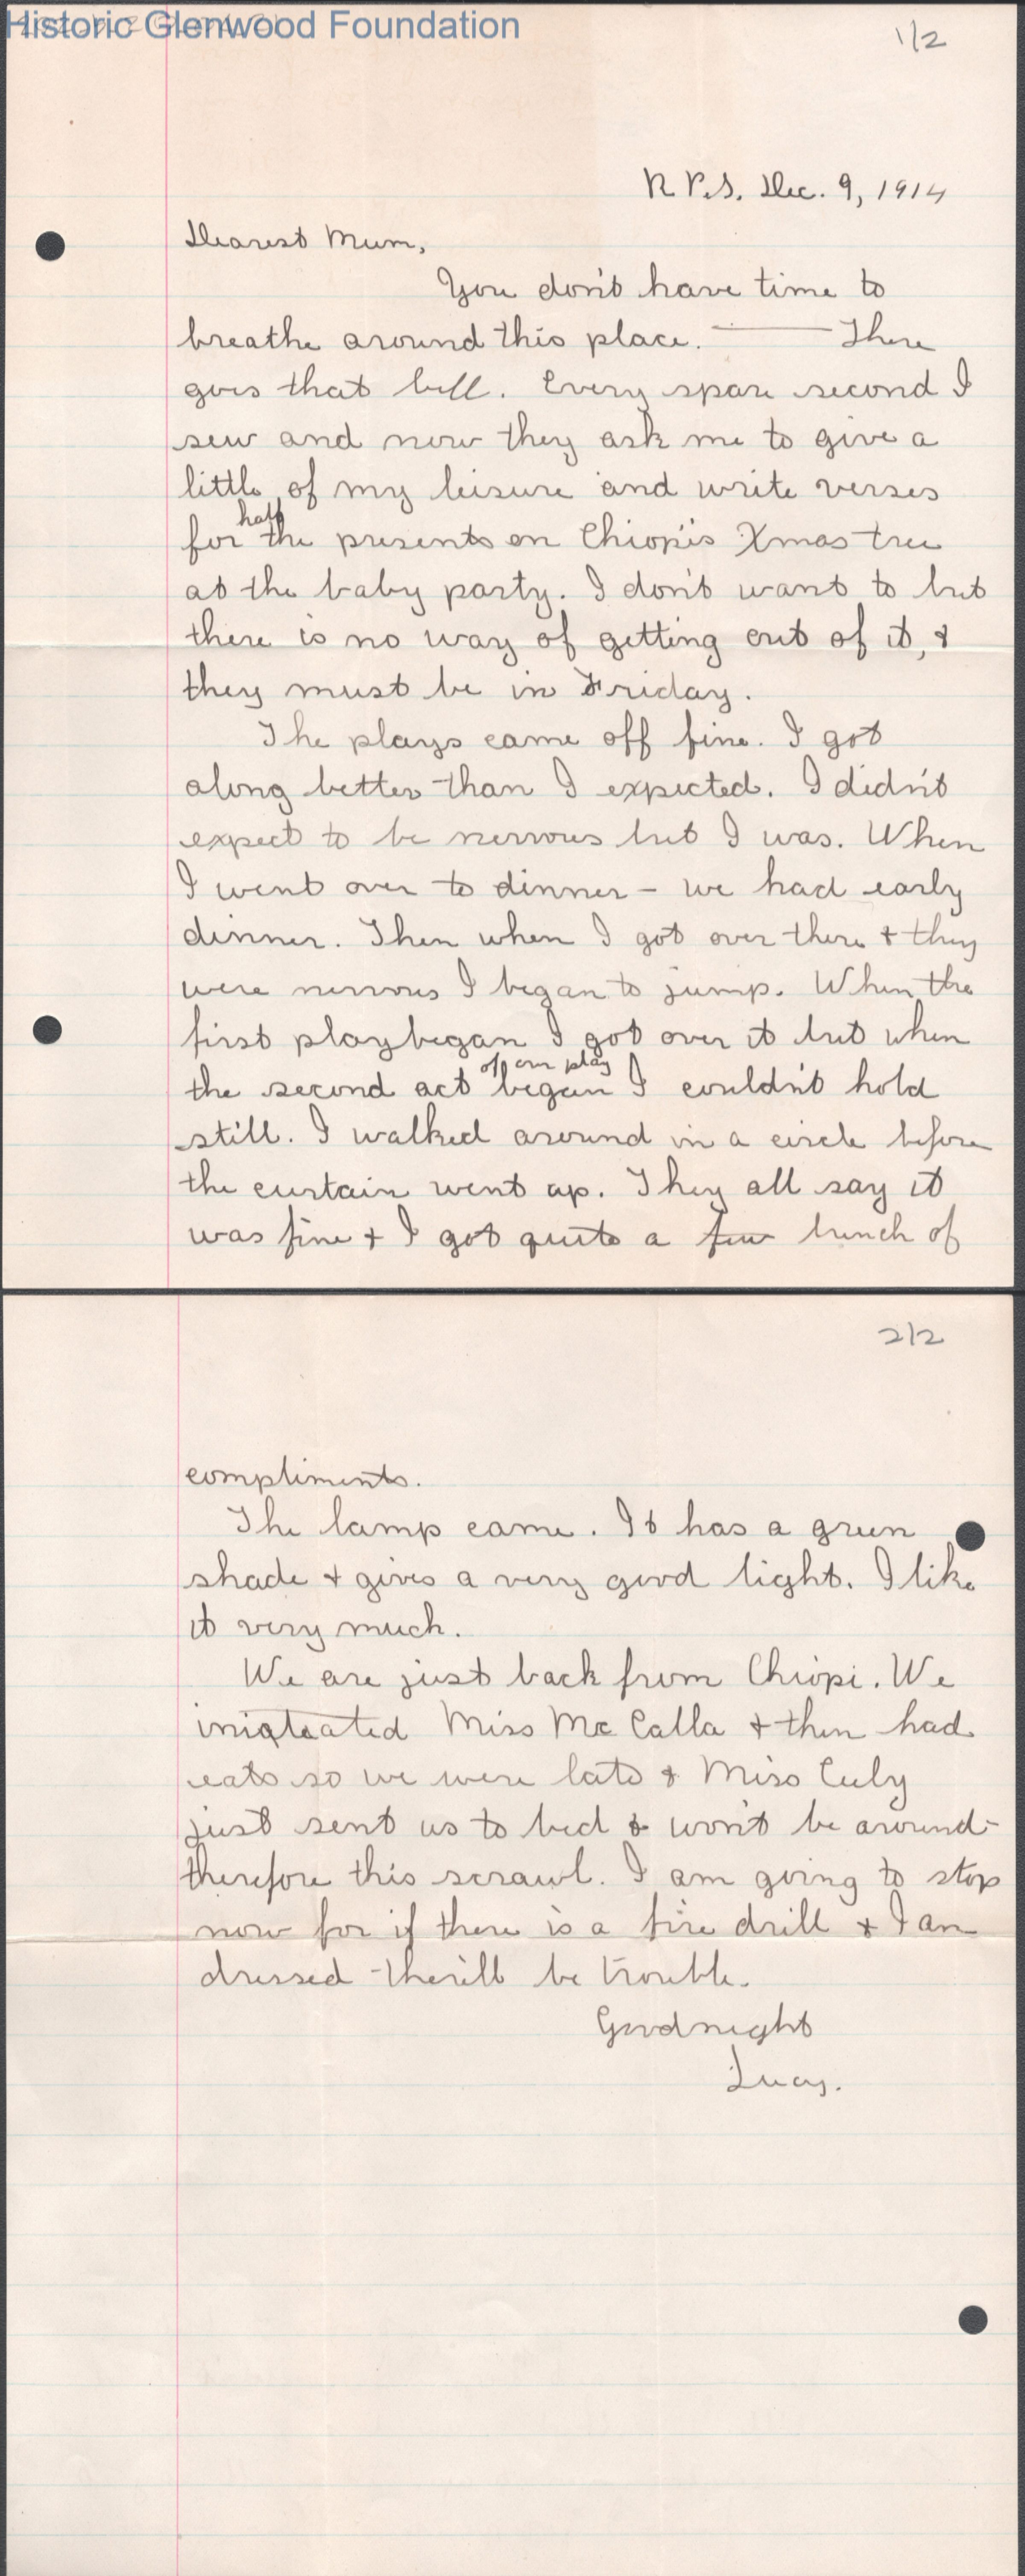 Historic Glenwood Foundation
1/2
R.P.S. Dec. 9, 1914
Dearest Mum,
You don't have time to
breathe around this place. ——— There
goes that bell. Every spare second I
sew and now they ask me to give a
little of my leisure and write verses
for half the presents on Chiopi's Xmas tree
at the baby party. I don't want to but
there is no way of getting out of it, &
they must be in Friday.
The plays came off fine. I got
along better than I expected. I didn't
expect to be nervous but I was. When
I went over to dinner – we had early
dinner. Then when I got over there & they
were nervous I began to jump. When the
first play began I got over it but when
the second act of our play began I couldn't hold
still. I walked around in a circle before
the curtain went up. They all say it
was fine & I got quite a few bunch of
2/2
compliments.
The lamp came. It has a green
shade & gives a very good light. I like
it very much.
We are just back from Chiopi. We
iniateated Miss McCalla & then had
eats so we were late & Miss Culy
just sent us to bed & won't be around –
therefore this scrawl. I am going to stop
now for if there is a fire drill & I am
dressed there'll be trouble.
Goodnight
Lucy.